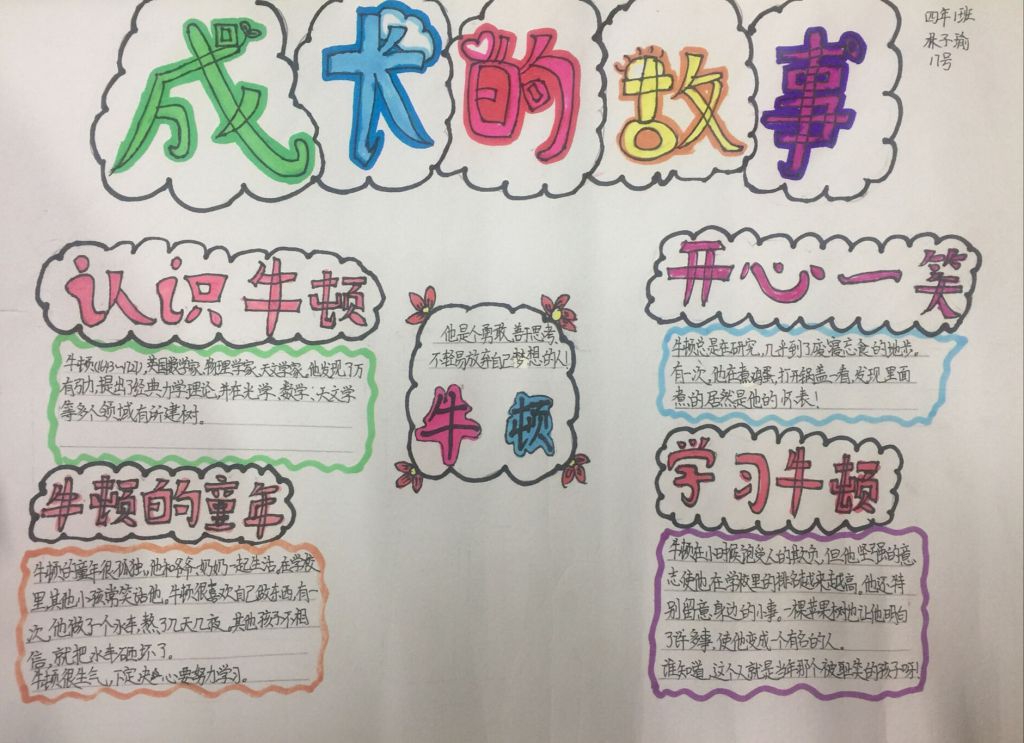 成长的故事
四年1班
子瑜
17号
认识牛顿
牛顿(1643-1727),英国数学家、物理学家、天文学家。他发现了万
有引力,提出了经典力学理论,并在光学、数学、天文学
等多个领域有所建树。
牛顿的童年
牛顿的童年很孤独,他和爷爷奶奶一起生活,在学校
里,其他小孩常笑话他。牛顿很喜欢自己做东西,有一
次,他做了一个水车,熬了几天几夜。其他孩子不相
信,就把水车砸坏了。
牛顿很生气,下定决心要努力学习。
他是个勇敢、善于思考、
不轻易放弃自己梦想的人!
牛顿
开心一笑
牛顿总是在研究,几乎到了废寝忘食的地步。
有一次,他在煮鸡蛋,打开锅盖一看,发现里面
煮的居然是他的怀表!
学习牛顿
牛顿在小时候饱受人的欺负,但他坚强的意
志使他在学校里的排名越来越高。他还特
别留意身边的小事。一棵苹果树也让他明白
了许多事,使他变成一个有名的人。
谁知道,这个人就是当年那个被耻笑的孩子呀!